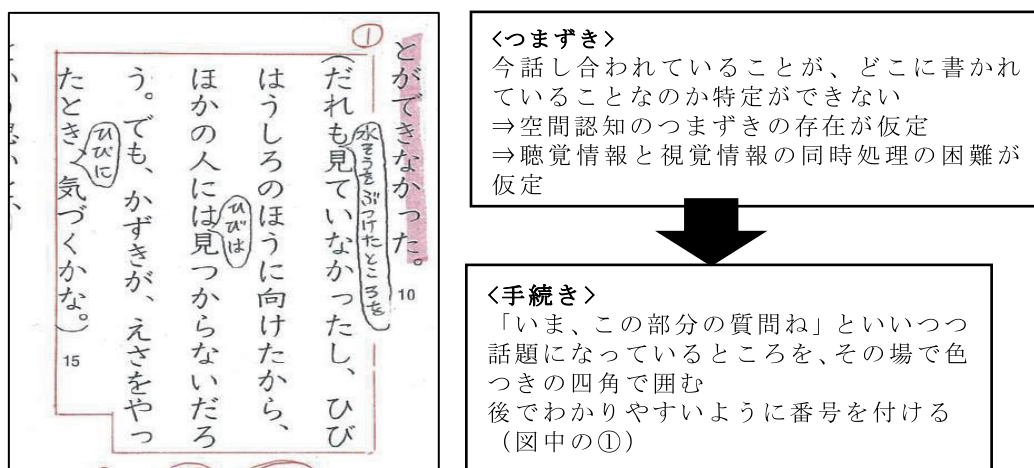 ①
とができなかった。
水そうをぶつけたところを
10
(だれも見ていなかったし、ひび
はうしろのほうに向けたから、
ひびは
ほかの人には見つからないだろ
う。でも、かずきが、えさをやっ
ひびに
たとき気づくかな。)
15
<つまずき>
今話し合われていることが、どこに書かれ
ていることなのか特定ができない
⇒空間認知のつまずきの存在が仮定
⇒聴覚情報と視覚情報の同時処理の困難が
仮定
<手続き>
「いま、この部分の質問ね」といいつつ
話題になっているところを、その場で色
つきの四角で囲む
後でわかりやすいように番号を付ける
(図中の①)